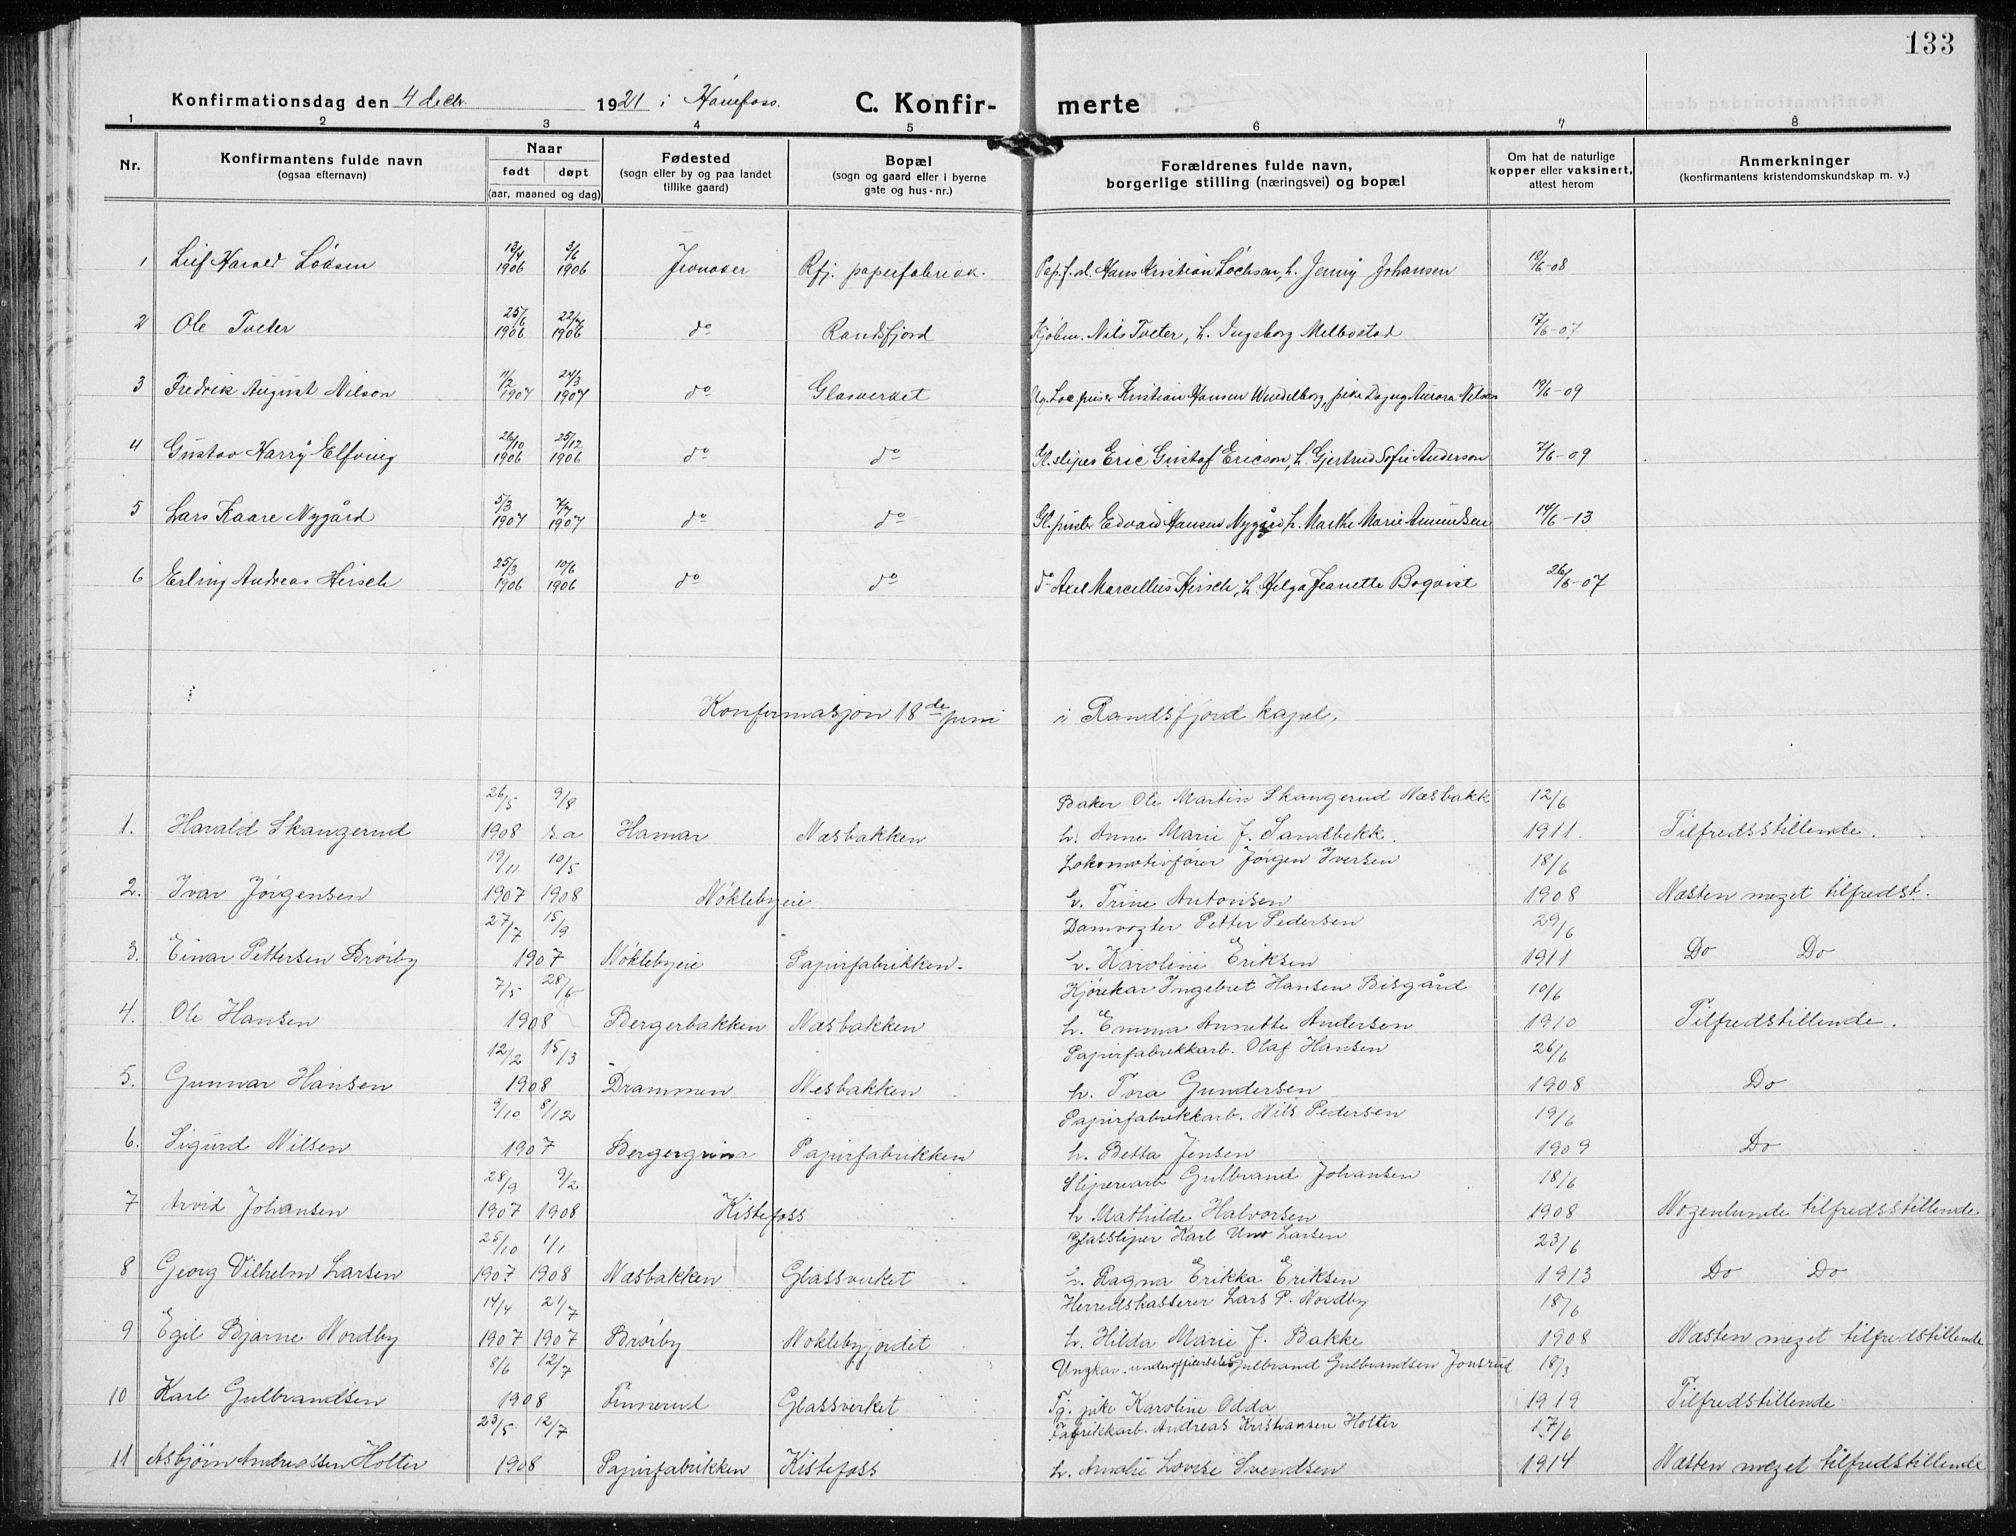 133
Konfirmationsdag den 4 decbr. 1921 i Hønefoss. C. Konfir- merte
1 2 3 4 5 6 7 8
Nr. Konfirmantens fulde navn (ogsaa efternavn) Naar født døpt (aar, maaned og dag) Fødested (sogn eller by og paa landet tillike gaard) Bopæl (sogn og gaard eller i byerne gate og hus-nr.) Forældrenes fulde navn, borgerlige stilling (næringsvei) og bopæl Om hat de naturlige kopper eller vaksinert, attest herom Anmerkninger (konfirmantens kristendomskundskap m. v.)
1 Leif Harald 13/4 1906 3/6 1906 Jevnaker Rfj. paperfabrikk. Hans Kristian Lochsen, h. Jenny Johansen 18/6-08
2 Ole Tveter 25/6 1906 22/7 1906 do Randsfjord Kjøbm. Nils Tveter, h. Ingeborg Melbostad 17/6-07
3 Fredrik August Nilsen 11/2 1907 24/3 1907 do Glasverket Kristian Hansen Wendelborg, pike Dagny Aurora Nilsen 19/6-09
4 Gustav Harry Elfving 26/10 1906 25/12 1906 do do Gl.sliper Eric Gustaf Ericson, h. Gjertrud Sofie Anderson 7/6-09
5 Lars Kaare Nygård 5/3 1907 7/7 1907 do do Gl.puster Edvard Hansen Nygård h. Marthe Marie Amundsen 14/6-13
6 Erling Andreas Hirsch 25/3 1906 10/6 1906 do do do Axel Marcellius Hirsch, h. Helga Jeanette Boqvist 26/6-07
Konfirmasjon 18de juni i Randsfjord kapel.
26/5 9/8 Baker Ole Martin Skangerud Næsbakk 12/6
1. Harald Skangerud 1908 s.a Hamar Næsbakken h. Anne Marie J. Sandbekk. 1911. Tilfredsstillende.
19/11 10/5 Lokomotivfører Jørgen Iversen 18/6
2. Ivar Jørgensen 1907 1908 Nøklebyeie h. Trine Antonsen 1908 Næsten meget tilfredst.
27/7 15/9 Damvogter Petter Pedersen 29/6
3. Einar Pettersen Brørby 1907 Nøklebyeie Papirfabrikken. h. Karoline Eriksen 1911 Do Do
7/5 28/6 Kjørekar Ingebret Hansen Bisgård 10/6
4. Ole Hansen 1908 Bergerbakken Næsbakken h. Emma Annette Andersen 1910 Tilfredstillende.
12/2 15/3 Papirfabrikkarb. Olaf Hansen 26/6
5. Gunnar Hansen 1908 Drammen Nesbakken h. Tora Gundersen 1908 Do
9/10 8/12 Papirfabrikkarb. Nils Pedersen 19/6
6. Sigurd Nilsen 1907 Bergergrina Papirfabrikken h. Betta Jensen 1909 Do
28/9 9/2 Sliperiarb Gulbrand Johansen 18/6
7 Arvid Johansen 1907 1908 Kistefoss h Mathilde Halvorsen 1908 Nogenlunde tilfredsstillende
25/10 1/1 Glassliper Karl Uno Larsen 23/6
8 Georg Vilhelm Larsen 1907 1908 Næsbakken Glassverket h. Ragna Erikka Eriksen 1913 Do Do
14/4 21/7 Herredskasserer Lars P. Nordby 18/6
9 Egil Bjarne Nordby 1907 1907 Brørby Nøklebyjordet h. Hilda Marie J. Bakke 1908 Næsten meget tilfredstillende
8/6 12/7 Ungkar. Gulbrand Gulbrandsen Jonsrud 18/3
10 Karl Gulbrandsen 1908 Finnerud Glassverket Tj. pike Karoline Odda 1919 Tilfredstillende
23/5 12/7 Fabrikkarb. Andreas Kristiansen Holter 17/6
11 Asbjørn Andreassen Holter 1908 Papirfabrikken Kistefoss h. Amalie Lovise Svendsen 1914 Næsten meget tilfredstillende